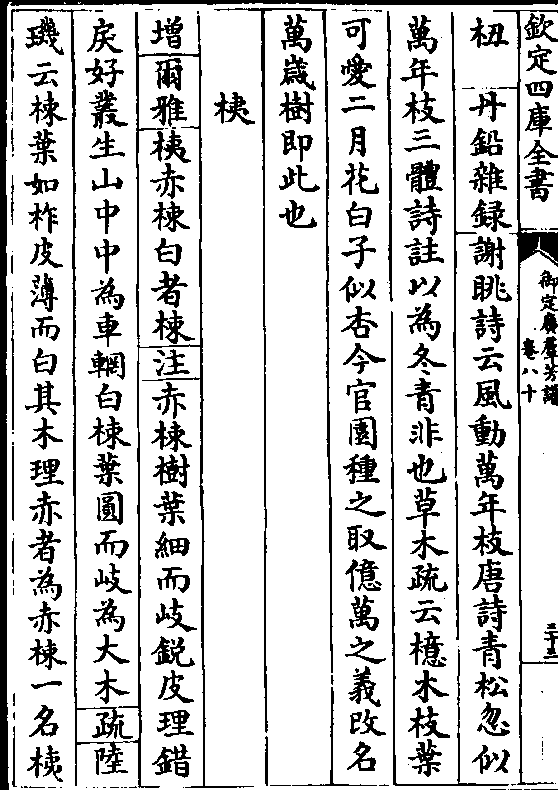 欽定四庫全書
御定廣羣芳譜
卷八十
三十三
杻　丹鉛雜録謝眺詩云風動萬年枝唐詩青松忽似
萬年枝三體詩註以為冬青非也草木疏云檍木枝葉
可愛二月花白子似杏今官園種之取億萬之義改名
萬嵗樹即此也
桋
增爾雅桋赤楝白者楝注赤楝樹葉細而岐鋭皮理錯
戾好叢生山中中為車輞白楝葉圓而岐為大木疏陸
璣云楝葉如柞皮薄而白其木理赤者為赤楝一名桋